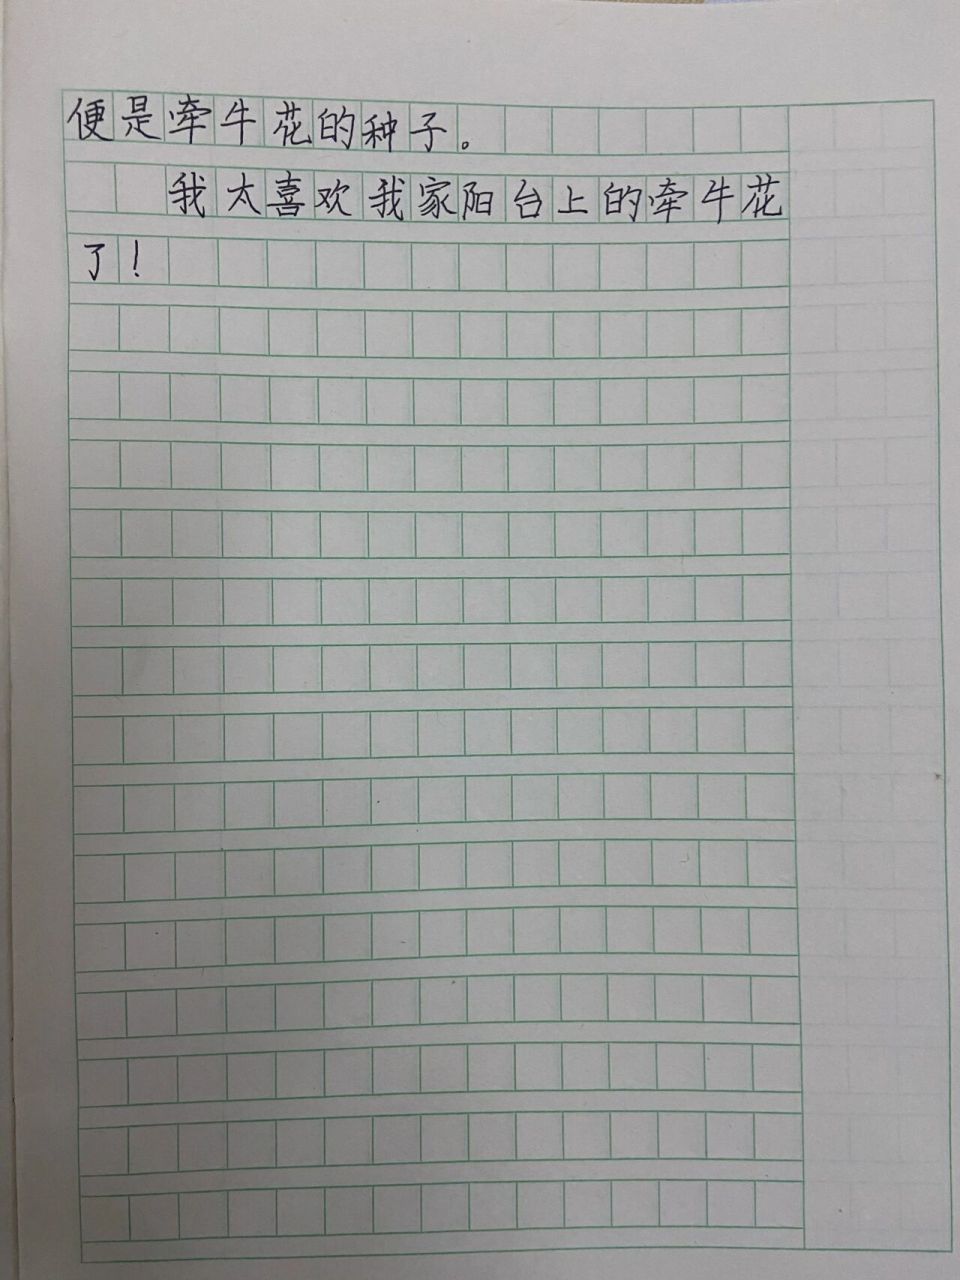 便是牵牛花的种子。
我太喜欢我家阳台上的牵牛花
了！